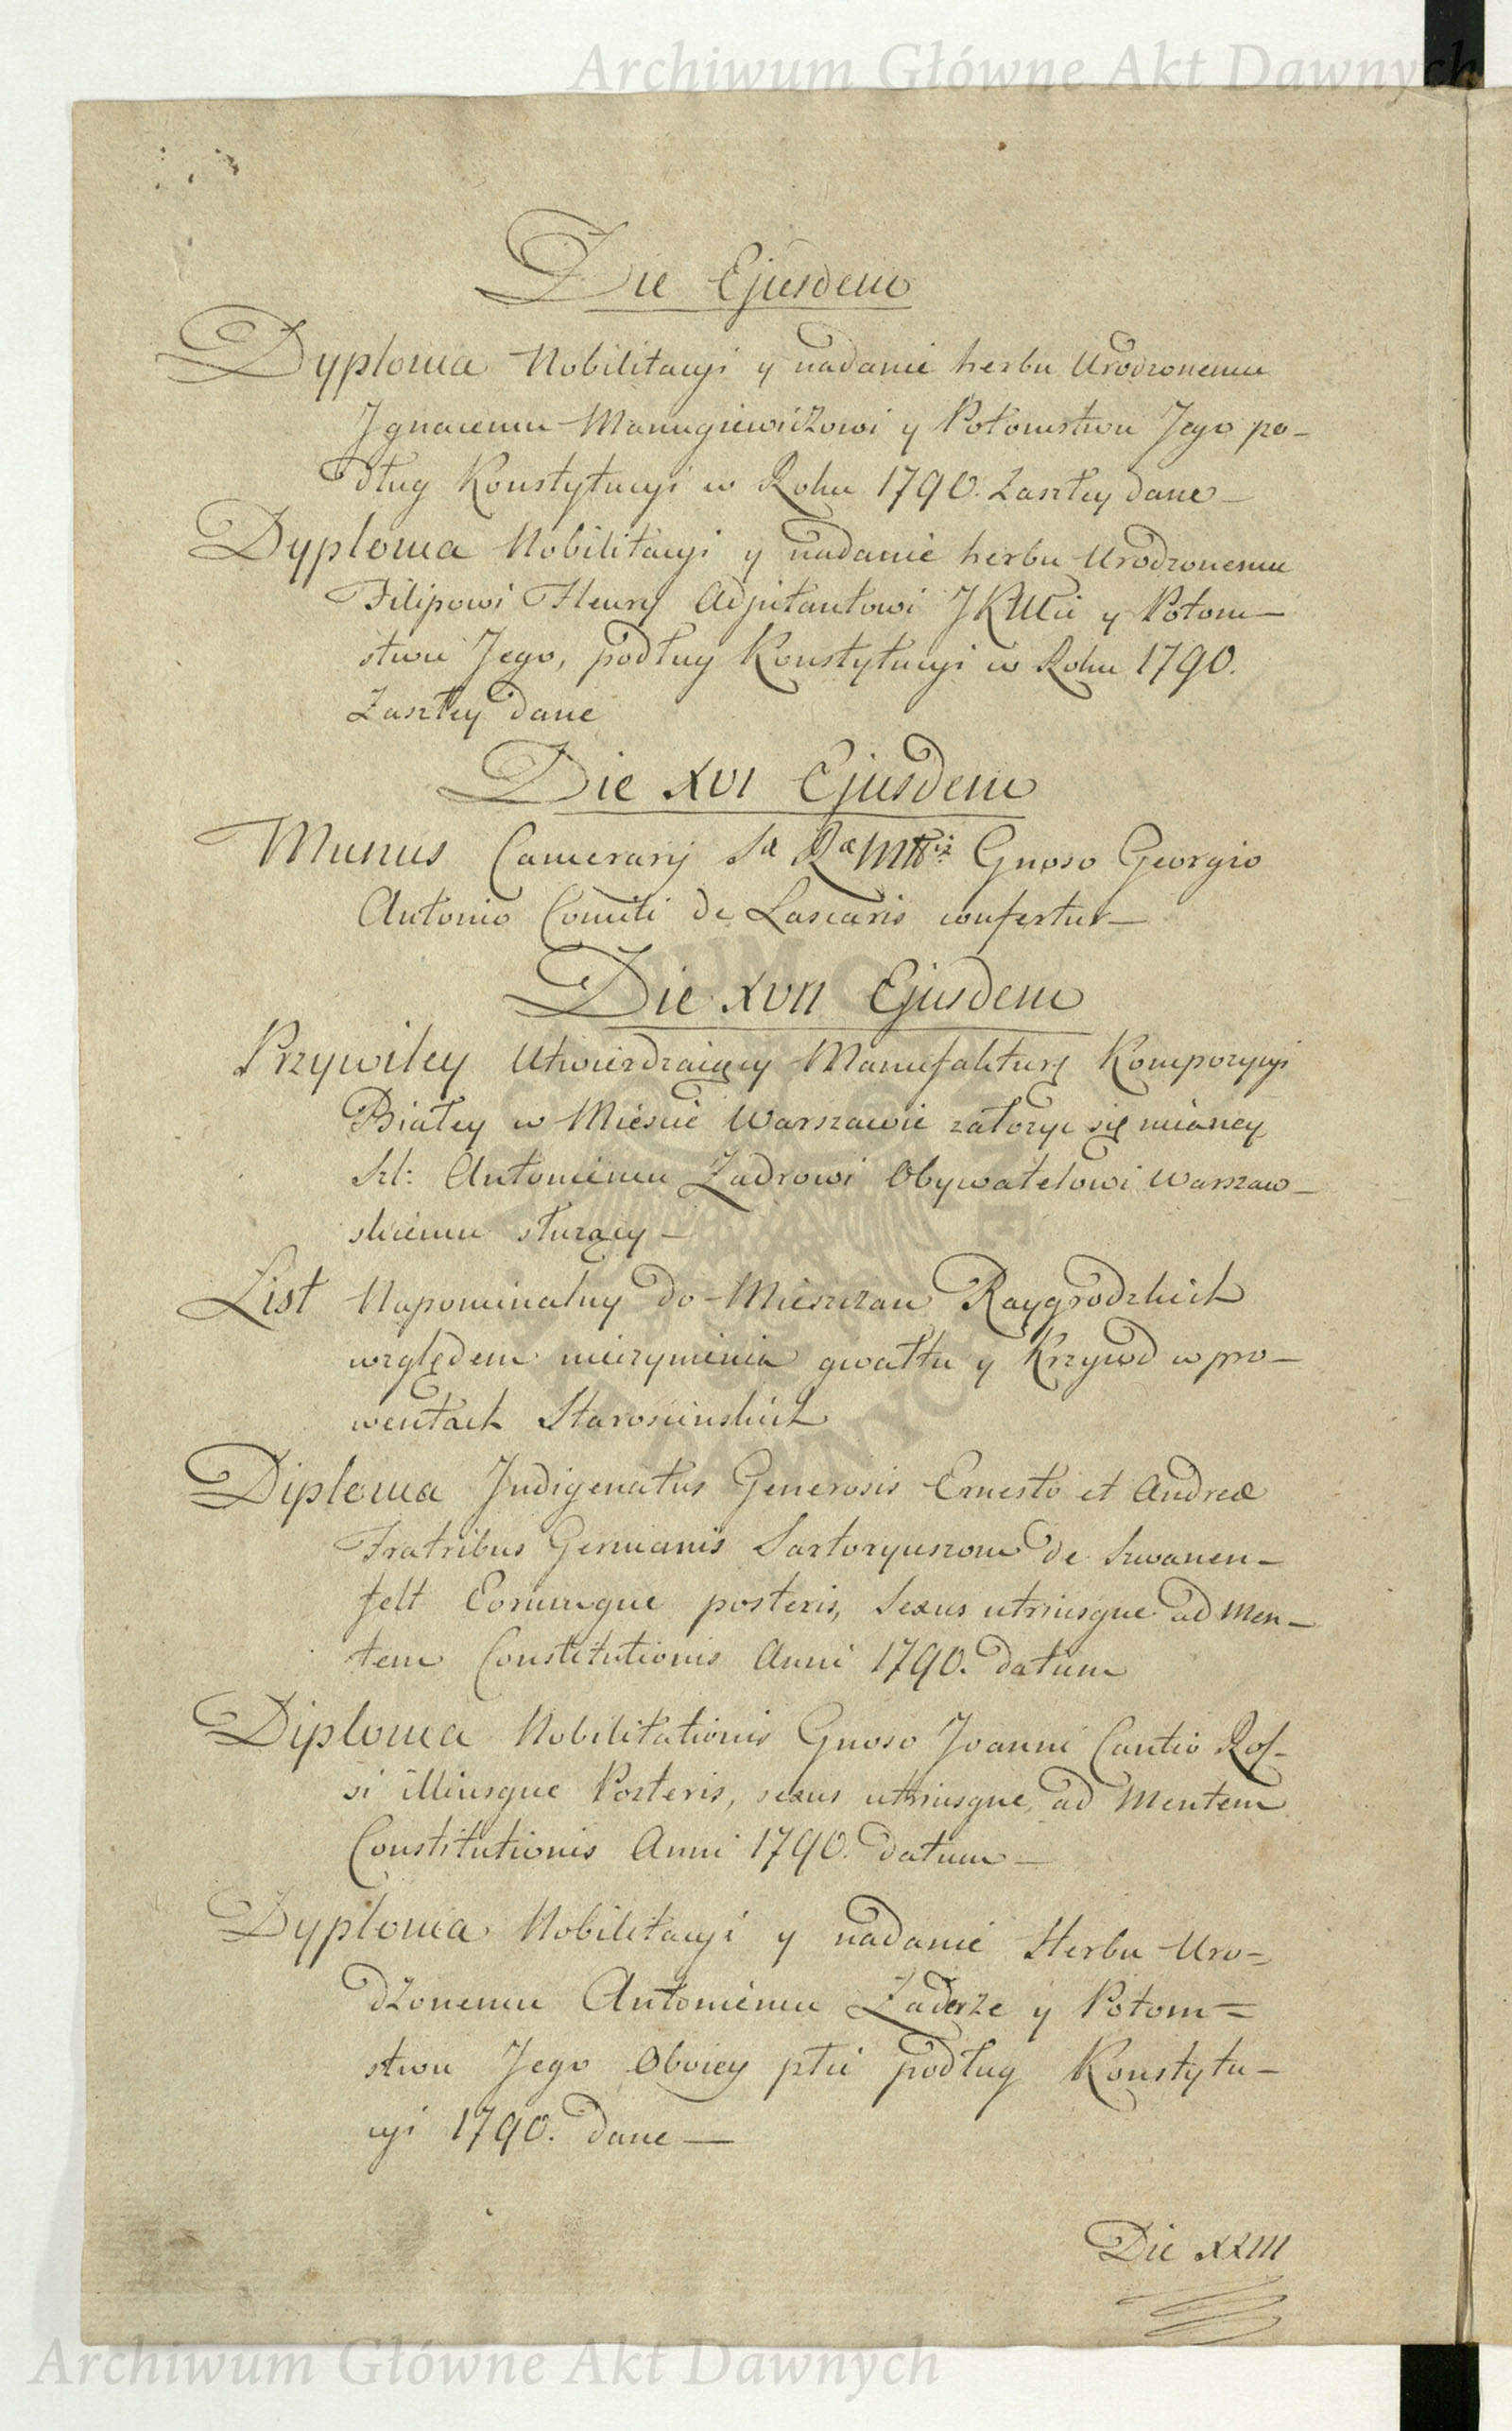 Archiwum Główne Akt Dawnych
Die Ejusdem
Dyploma Nobilitacyi y nadanie herbu Urodzonemu
Ignacemu Manugiewiczowi y Potomstwu Jego po-
dług Konstytucyi w Roku 1790. Zaszłey dane-
Dyploma Nobilitacyi y nadanie herbu Urodzonemu
Filipowi Fleury Adjutantowi JKMci y Potom-
stwu Jego, podług Konstytucyi w Roku 1790.
Zaszłey dane
Die XVI Ejusdem
Munus Camerarij Sæ Ræ Mttis Gnoso Georgio
Antonio Comiti de Lascaris confertur-
Die XVII Ejusdem
Przywiley Utwierdzaiący Manufakturę Kompozycyi
Białey w Mieście Warszawie założyc się maiącey
Szl: Antoniemu Zadrowi Obywatelowi Warszaw-
skiemu służący-
List Napominalny do Mieszczan Raygrodzkich
względem nieczynienia gwałtu y Krzywd w pro-
wentach Starościnskich
Diploma Indigenatus Generosis Ernesto et Andreæ
Fratribus Germanis Sartoryuszom de Szwanen-
felt Eorumque posteris, Sexus utriusque ad Men-
tem Constitutionis Anni 1790. datum
Diploma Nobilitationis Gnoso Joanni Cantio Ros-
si illiusque Posteris, sexus utriusque, ad Mentem
Constitutionis Anni 1790. datum-
Dyploma Nobilitacyi y nadanie Herbu Uro=
dzonemu Antoniemu Zaderze y Potom=
stwu Jego Oboiey płci podług Konstytu-
cyi 1790. dane-
Die XXIII
Archiwum Główne Akt Dawnych